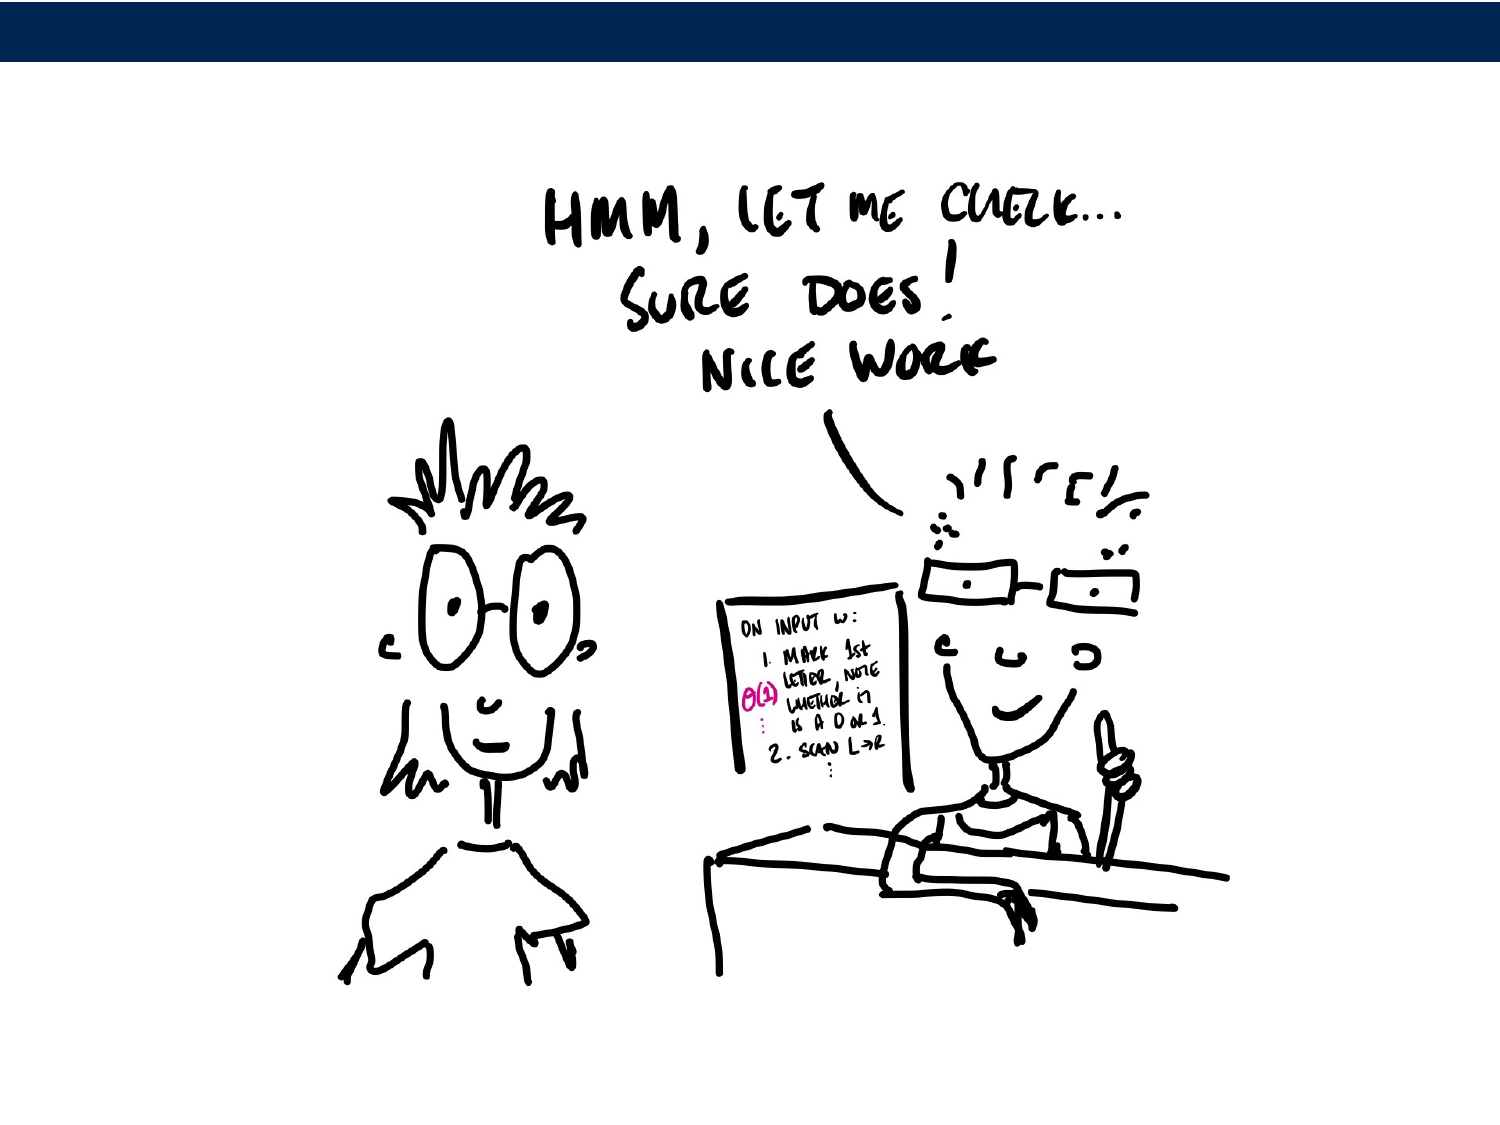 HMM, LET ME CHECK...
SURE DOES!
NICE WORK
ON INPUT W:
1. MARK 1st
LETTER, NOTE
θ(1) WHETHER it
⋮ IS A 0 OR 1.
2. SCAN L→R
⋮